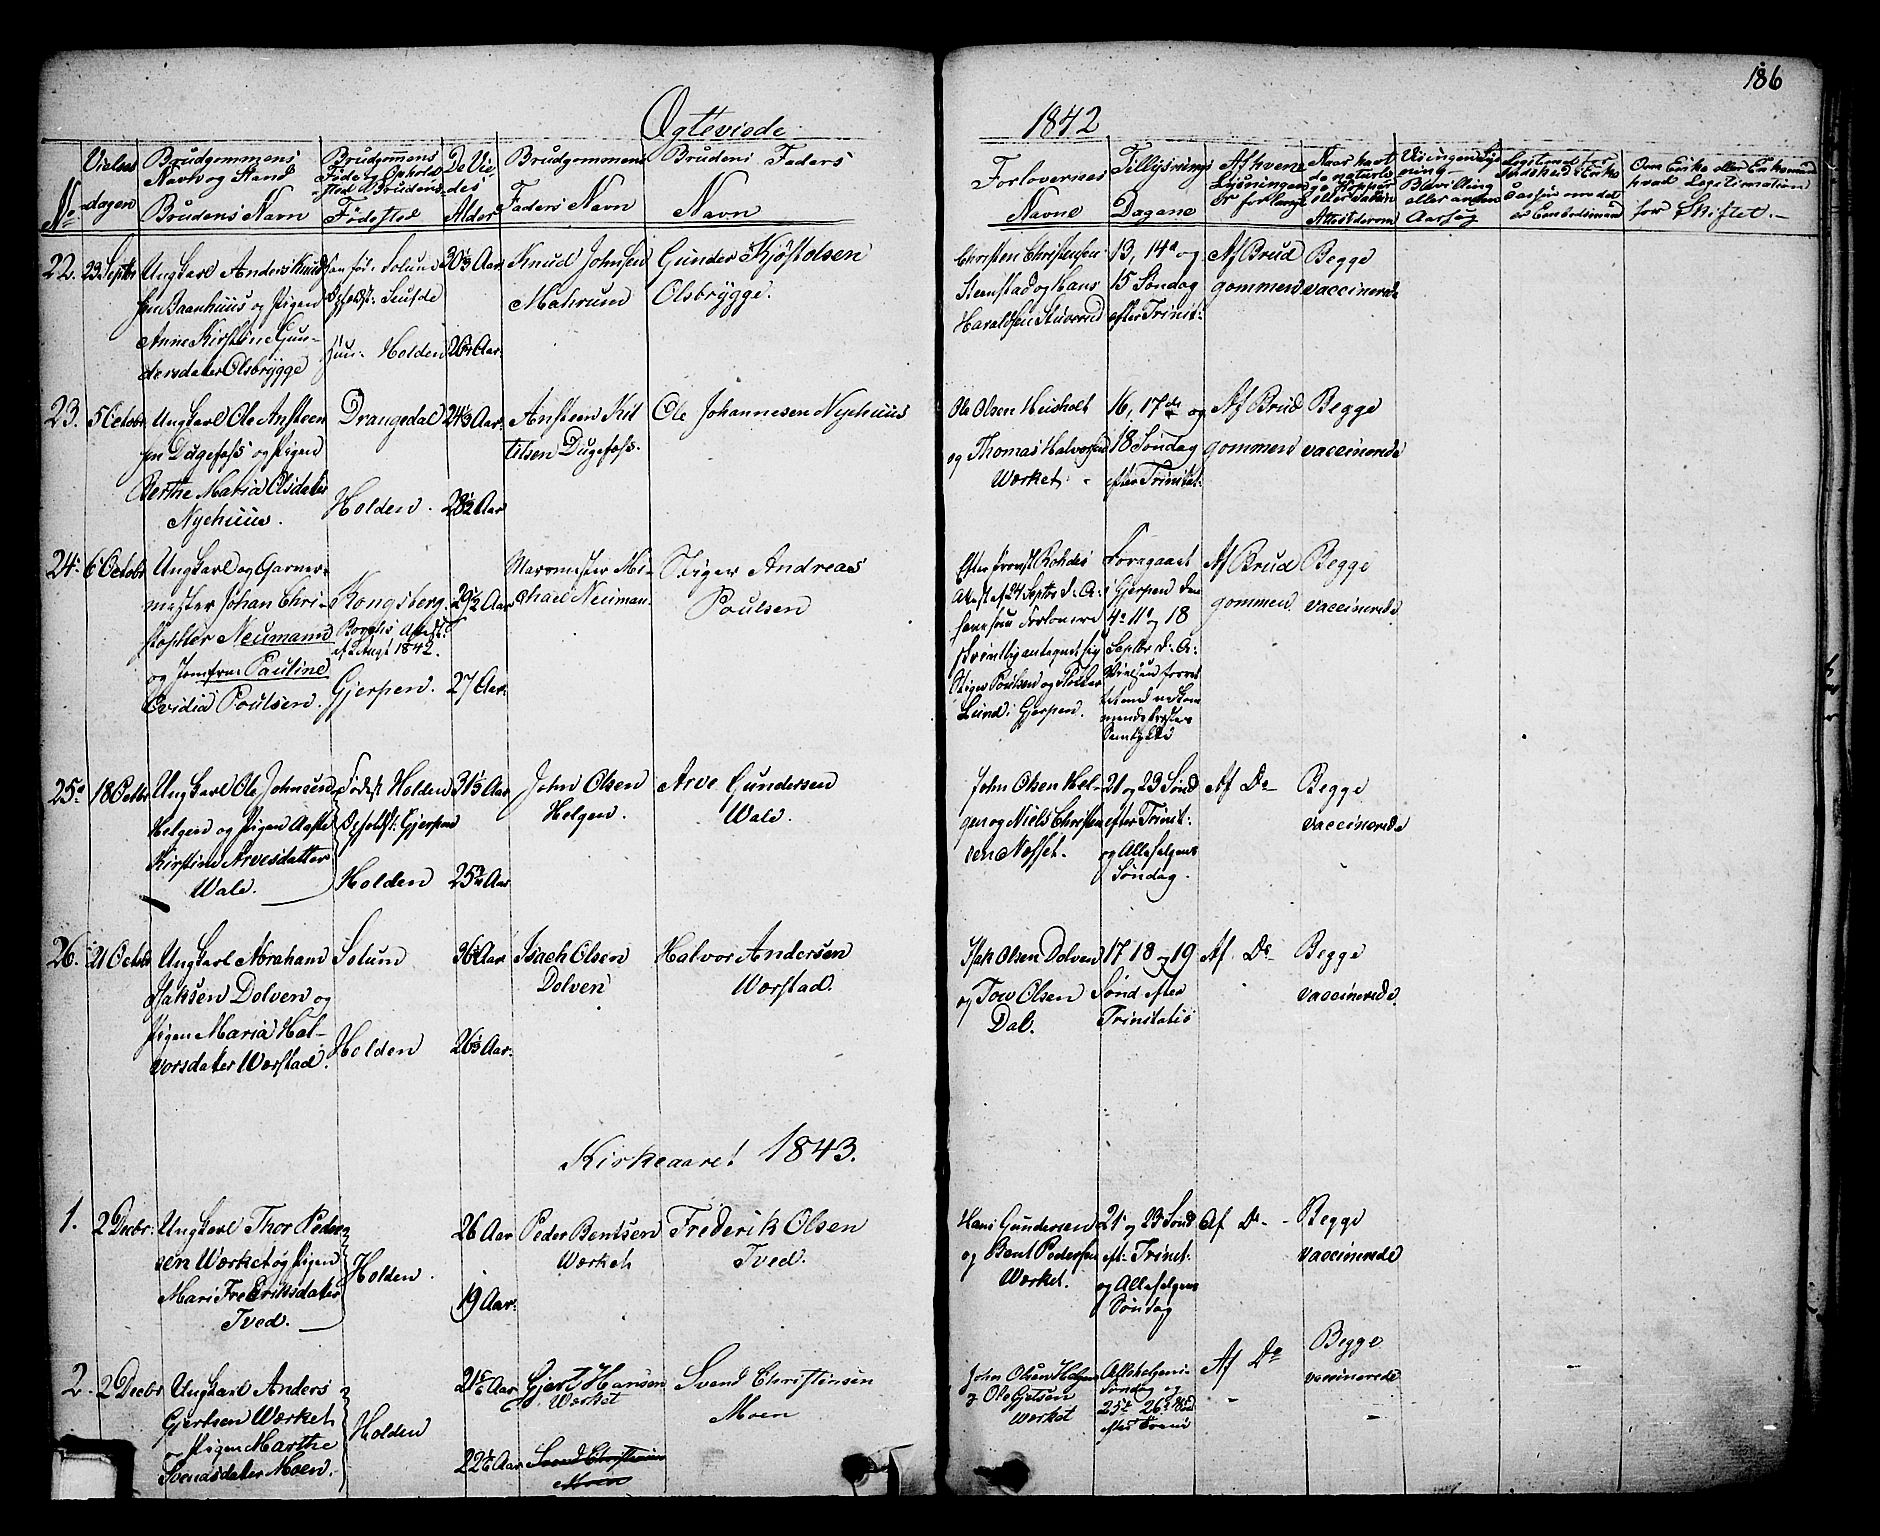 186
Ægteviede
1842
No
Vielses
dagen
Brudgommens
Navn og Stand
Brudens Navn
Brudgommens
Føde og Opholds
sted Brudens
Fødested
De Vie
des
Alder
Brudgommens
Faders Navn
Brudens Faders
Navn
Forlovernes
Navne
Tillysnings
Dagene
Af hvem
Lysningen
er forlangt
Naar havt
de naturli-
ge Kopper
eller Vaccin
Attest derom
Bevilling
eller anden
Om Enke eller Enkemand
hvad Legitimation
for Skiftet.
22. 23 Septbr
Ungkarl Anders Knud
sen Baanhuus og Pigen
Anne Kirstine Gun-
dersdater Olsbrygge
Solum
hun: Holden
30 1/3 Aar
26 Aar
Knud Johnsen
Mahrund
Gunder Kjøstolsen
Olsbrygge.
Christen Christensen
Steenstad og Hans
Haraldsen Stuverud
13, 14de og
15 Søndag
efter Trinit:
Af Brud
gommen
Begge
vaccinerede
23. 5 Octobr
Ungkarl Ole Ansteen
sen Dugefoss og Pigen
Berthe Maria Olsdater
Nyehuus.
Drangedal
Holden.
24 1/3 Aar
28 1/2 Aar
Ansteen Kit
tilsen Dugefoss.
Ole Johannesen Nyehuus
Ole Olsen Heisholt
og Thomas Halvorsen
Værket.
16, 17de og
18 Søndag
efter Trinitat:
Af Brud
gommen
Begge
vaccinerede
24. 6 Octobr
Ungkarl og Garver-
mester Johan Chri-
stopher Neumann
og Jomfrue Pauline
Ovidia Poulsen.
Kongsberg.
Aug: 1842.
Gjerpen.
29 1/2 Aar
27 Aar.
Marsmester Mi-
chael Neuman.
Stiger Andreas
Poulsen
Efter Provst Rohdes
Attest af 24 Septbr d: A:
Stiger Poulsen og
Lund i Gjerpen.
Foregaaet
i Gjerpen den
4de 11te og 18
Septbr d: A:
Af Brud
gommen.
Begge
vaccinerede
25. 18 Octbr
Ungkarl Ole Johnsen
Helgen og Pigen Aaste
Kirstine Arvesdatter
Wale.
Fødest: Holden
Opholdst: Gjerpen
Holden
31 1/3 Aar
25 Aar
John Olsen
Helgen.
Arve Gundersen
Wale.
John Olsen Hel-
gen og Niels Christen
sen Nesset.
21 og 23 Sønd
efter Trinit:
og Allehelgens
Søndag.
Af Do
Begge
vaccinerede
26. 21 Octobr
Ungkarl Abraham
Isaksen Dolven og
Pigen Maria Hal-
vorsdater Værstad.
Solum
Holden
36 Aar
26 1/3 Aar.
Isach Olsen
Dolven
Halvor Andersen
Værstad.
Isak Olsen Dolven
og Tov Olsen
Dal.
17 18 og 19
Sønd efter
Trinitatis
Af Do
Begge
vaccinerede
Kirkeaaret 1843.
1. 2 Decbr:
Ungkarl Thor Peder
sen Værket og Pigen
Mari Frederiksdater
Tved.
Holden.
26 Aar
19 Aar.
Peder Bentsen
Værket
Frederik Olsen
Tved.
Hans Gundersen
og Bent Pedersen
Værket.
21 og 23 Sønd
eft: Trinit:
og Allehelgens
Søndag
Af Do
Begge
vaccinerede
2. 2 Decbr
Ungkarl Anders
Gjertsen Værket
og Pigen Marthe
Svendsdater Moen.
Holden
Aar
22 Aar
Gjert Hansen
Værket
Svend Christensen
Moen
Svend Christensen
Moen
John Olsen Helgen
og Ole Gjetsen
Værket
Allehelgens
Søndag og
25de 26de Sønd
efter Trinit
Af Do
Begge
vaccinerede